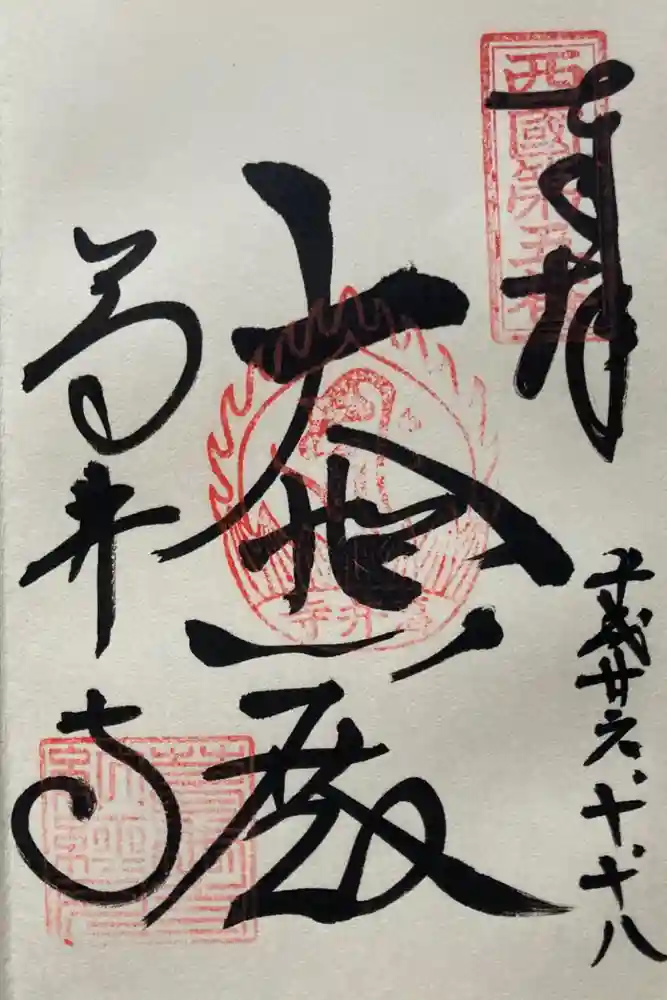 西國第五番
奉拝
平成廿六、十、十八
大悲殿
葛井寺
葛井寺